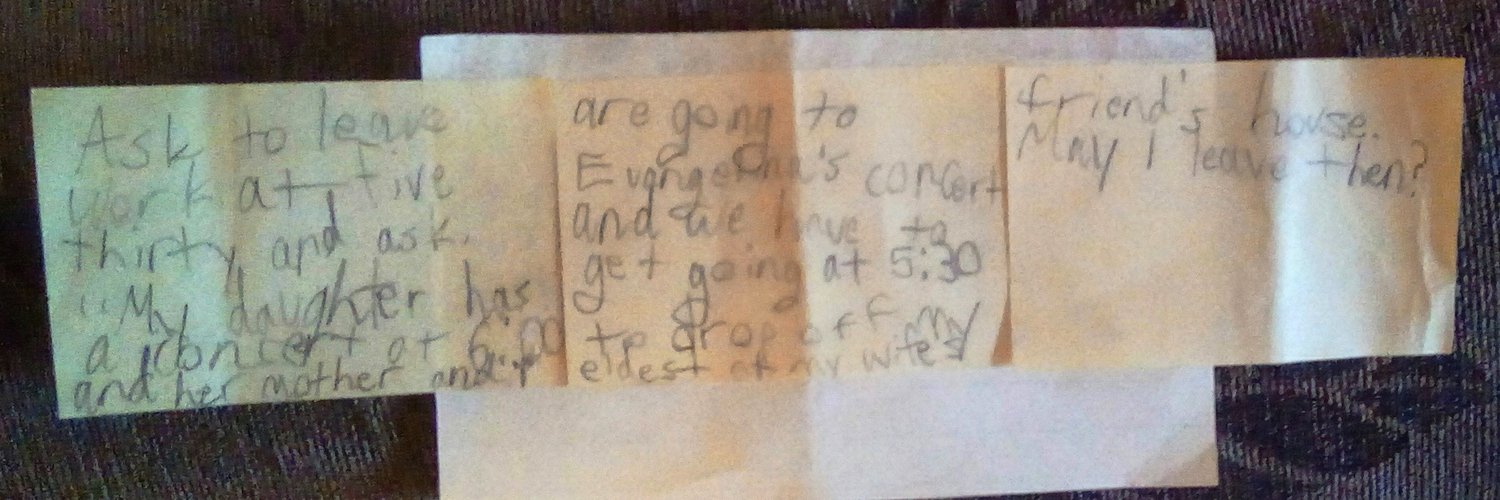 Ask to leave
work at five
thirty and ask.
"My daughter has
a concert at 6:00
and her mother and I
are going to
Evangelina's concert
and we have to
get going at 5:30
to drop off my
eldest at my wife's
friend's house.
May I leave then?